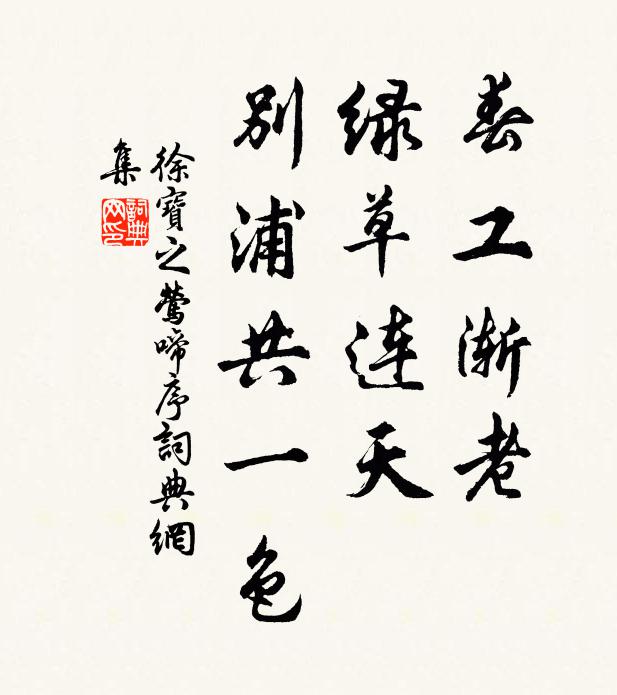 春工漸老
緑草連天
別浦共一色
徐寶之鶯啼序詞典網
集
詞典
网印